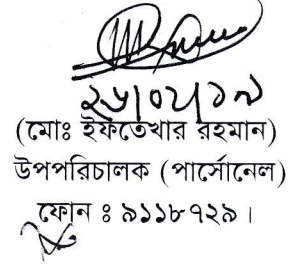 ২৬/০২/১৯
(মোঃ ইফতেখার রহমান)
উপপরিচালক (পার্সোনেল)
ফোন ঃ ৯১১৮৭২৯।